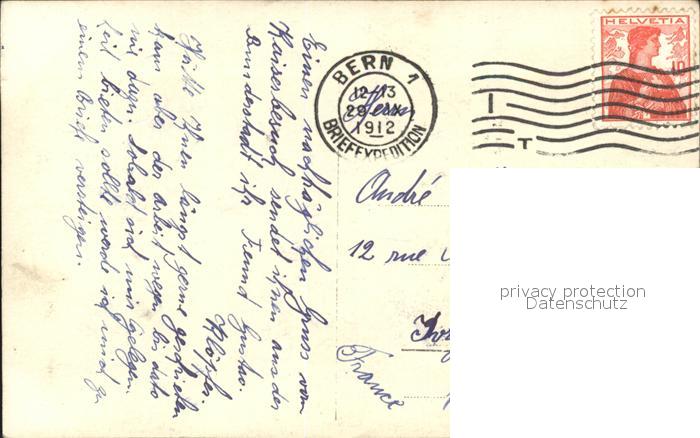 Einen nachträglichen Gruss vom
Kaiserbesuch sendet ihnen aus der
Bundesstadt ihr Freund Gustav
Hätte Ihnen längst gerne geschrieben
kam aber der Arbeit wegen bis dato
nie dazu. Sobald sich mir Gelegen-
heit bieten sollte werde ich mich zu
einem Brief versteigen.
BERN 1
12-13
1912
BRIEFEXPEDITION
HELVETIA
10
Herrn
André
12 rue
France
privacy protection
Datenschutz